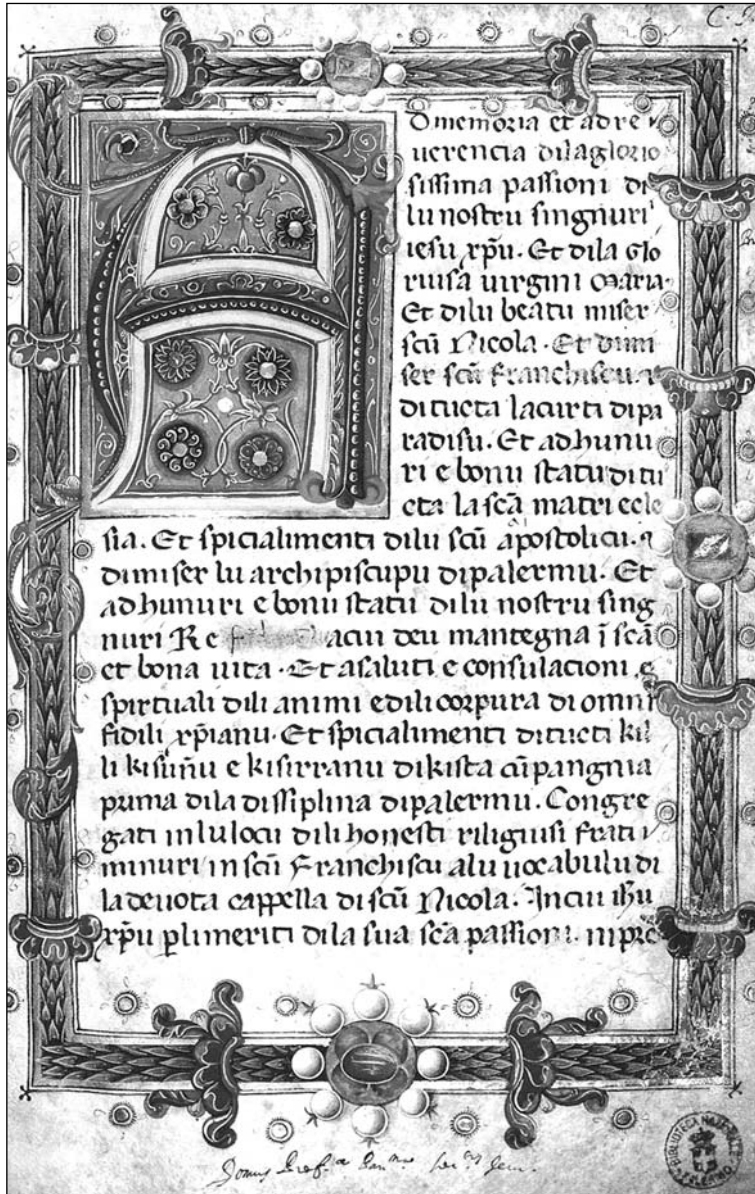 C.
D memoria et ad re
uerencia dila glorio
sissima passioni di
lu nostru singnuri
iesu xp̄u. Et dila glo
riusa uirgini maria.
Et dilu beatu miser
scū Nicola. Et di mi
ser scū Franchiscu
di tucta la curti di pa
radisu. Et ad hunu
ri e bonu statu di tu
cta la scā matri ecle
sia. Et spicialimenti dilu scū apostolicu. ⁊
di miser lu archipiscupu di palermu. Et
ad hunuri e bonu statu dilu nostru sing
nuri Re acui deu mantegna ī scā
et bona uita. Et a saluti e consulacioni
spirtuali dili animi e dili corpura di omni
fidili xp̄ianu. Et spicialimenti di tucti kil
li ki sūnu e ki sirranu di kista cūpangnia
prima dila dissiplina di palermu. Congre
gati in lu locu dili honesti riligiusi frati
minuri in scū Franchiscu alu uocabulu di
la deuota cappella di scū Nicola. In cui ihū
xp̄u p̲ li meriti dila sua scā passioni. in pre
BIBLIOTECA NAZIONALE
PALERMO